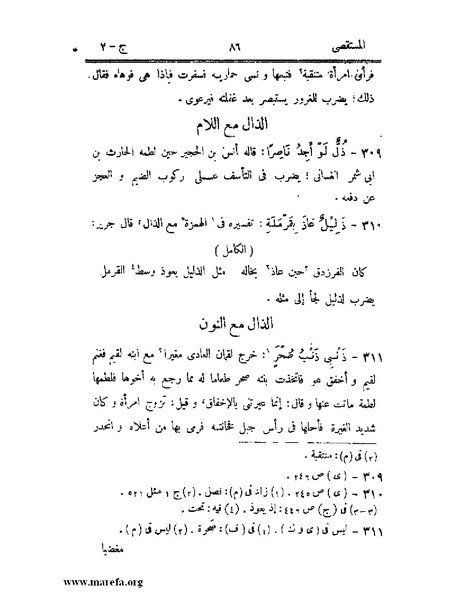 المستقصى ٨٦ ج - ٢
فرأى امرأة متنقبة٢ فتبعها و نسى حماريه فسفرت فإذا هى فوهاء فقال
ذلك؛ يضرب للغرور يستبصر بعد غفلته فيرعوى .
الذال مع اللام
٣٠٩ - ذُلٌّ لَوْ أَجِدُ نَاصِرًا: قاله أنس بن الحجير حين لطمه الحارث بن
ابى شمر الغسانى؛ يضرب فى التأسف عـلـى ركوب الضيم و العجز
عن دفعه .
٣١٠ - ذَلِيْلٌ عَاذَ بِقَرْمَلَةٍ : تفسيره فى١ الهمزة٢ مع الذال، قال جرير:
( الكامل )
كان الفرزدق ٣حين عاذ٣ بخاله مثل الذليل يعوذ وسط٤ القرمل
يضرب لذليل لجأ إلى مثله .
الذال مع النون
٣١١ - ذَنْبِى ذَنْبُ صُحْرَ١: خرج لقمان العادى مغيرا٢ مع ابنه لقيم فغنم
لقيم و أخفق هو فاتخذت بنته صحر طعاما له مما رجع به أخوها فلطمها
لطمة ماتت عنها و قال: إنما عيرتنى بالإخفاق، و قيل: تزوج امرأة و كان
شديد الغيرة فأحلها فى رأس جبل فخانته فرمى بها من أعلاه و انحدر
(٢) فى (م): منتقبة .
٣٠٩ - (ى) ص ٢٤٦ .
٣١٠ - (ى) ص ٢٤٥ . (١) زاد فى (م): فصل . (٢) ج ١ مثل ٥٢١ .
(٣-٣) فى (ج) ص ٤٤٦: إذ يعوذ . (٤) فيه: تحت .
٣١١ - ليس فى (ى و ك) . (١) فى (ف): صحرة . (٢) ليس فى (م) .
مغضبا
www.marefa.org